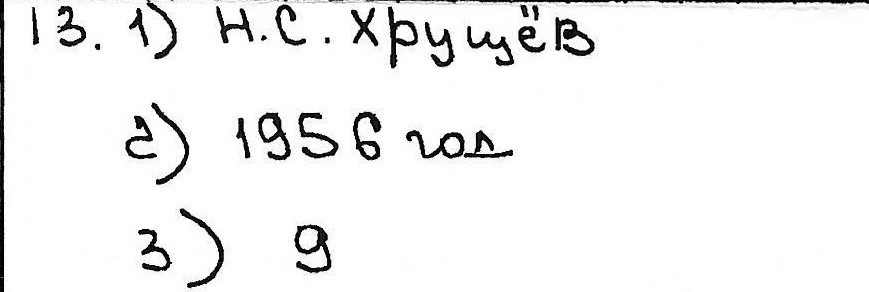 13. 1) Н.С. Хрущёв
2) 1956 год
3) 9